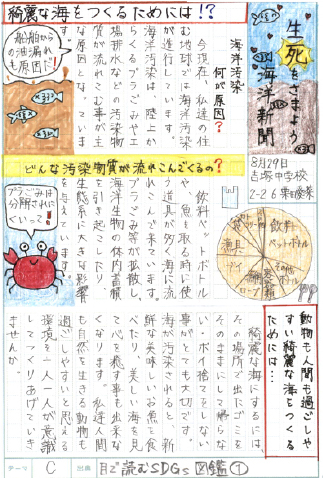 綺麗な海をつくるためには!?
生死をさまよう
海洋新聞
8月29日
吉塚中学校
2-2 6
船舶から
の油漏れ
も原因だ!
海洋汚染
何が原因?
今現在、私達の住
む地球では海洋汚染
が進行しています。
海洋汚染は、陸上か
らくるプラごみや工
場排水などの汚染物
質が流れこむ事が主
な原因となっていま
す。
どんな汚染物質が流れこんでくるの?
飲料ペットボトル
や、魚を取る時に使
う道具が多く海に流
れこんで来ています。
プラごみ等が拡散し、
海洋生物の体内蓄積
を引き起こしたり、
生態系に大きな影響
を与えています。
プラごみは
分解されに
くいって!
飲料
ペットボトル
その他
漁具
ブイ
ロープ
容器類
動物も人間も過ごしや
すい綺麗な海をつくる
ためには…
綺麗な海にするには、
その場所で出たごみを
そのままにして帰らな
い・ポイ捨てをしない
事がとても大切です。
海が汚染されると、新
鮮な美味しいお魚を食
べたり、美しい海を見
て心を癒す事も出来な
くなります。私達人間
も自然を生きる動物も
過ごしやすいと思える
環境を一人一人が意識
してつくりあげていき
ませんか。
テーマ
C
出典
目で読むSDGs図鑑①